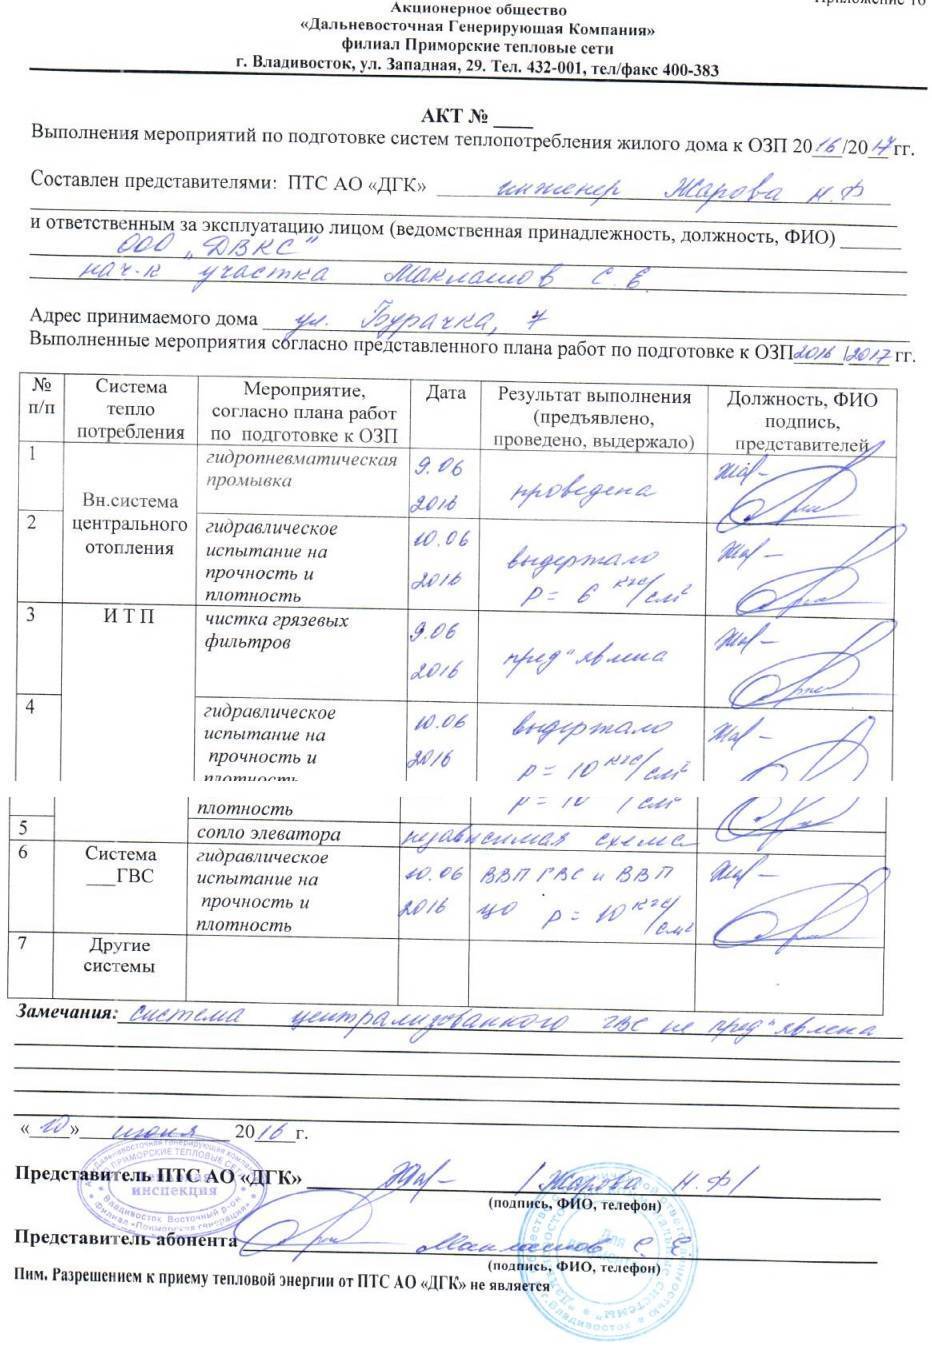 Приложение 16
Акционерное общество
«Дальневосточная Генерирующая Компания»
филиал Приморские тепловые сети
г. Владивосток, ул. Западная, 29. Тел. 432-001, тел/факс 400-383
АКТ № ____
Выполнения мероприятий по подготовке систем теплопотребления жилого дома к ОЗП 2016/2017 гг.
Составлен представителями: ПТС АО «ДГК» инженер Жарова Н.Ф
и ответственным за эксплуатацию лицом (ведомственная принадлежность, должность, ФИО)
ООО „ДВКС"
нач-к участка Маклашов С. Е.
Адрес принимаемого дома ул. Бурачка, 7
Выполненные мероприятия согласно представленного плана работ по подготовке к ОЗП 2016/2017 гг.
№ п/п
Система тепло потребления
Мероприятие, согласно плана работ по подготовке к ОЗП
Дата
Результат выполнения (предъявлено, проведено, выдержало)
Должность, ФИО подпись, представителей
1
Вн.система центрального отопления
гидропневматическая промывка
9.06 2016
проведена
Жар-
2
гидравлическое испытание на прочность и плотность
10.06 2016
выдержало
P = 6 кгс/см²
Жар-
3
И Т П
чистка грязевых фильтров
9.06 2016
пред"явлена
Жар-
4
гидравлическое испытание на прочность и плотность
10.06 2016
выдержало
P = 10 кгс/см²
Жар-
плотность
P = 10 /см²
5
сопло элеватора
независимая схема
6
Система ___ГВС
гидравлическое испытание на прочность и плотность
10.06 2016
ВВП ГВС и ВВП
ЦО P = 10 кгс/см²
Жар-
7
Другие системы
Замечания: система централизованного ГВС не пред"явлена
«10» июня 2016 г.
Представитель ПТС АО «ДГК» Жар- / Жарова Н.Ф/
(подпись, ФИО, телефон)
инспекция
Представитель абонента Маклашов С. Е.
(подпись, ФИО, телефон)
Пим. Разрешением к приему тепловой энергии от ПТС АО «ДГК» не является